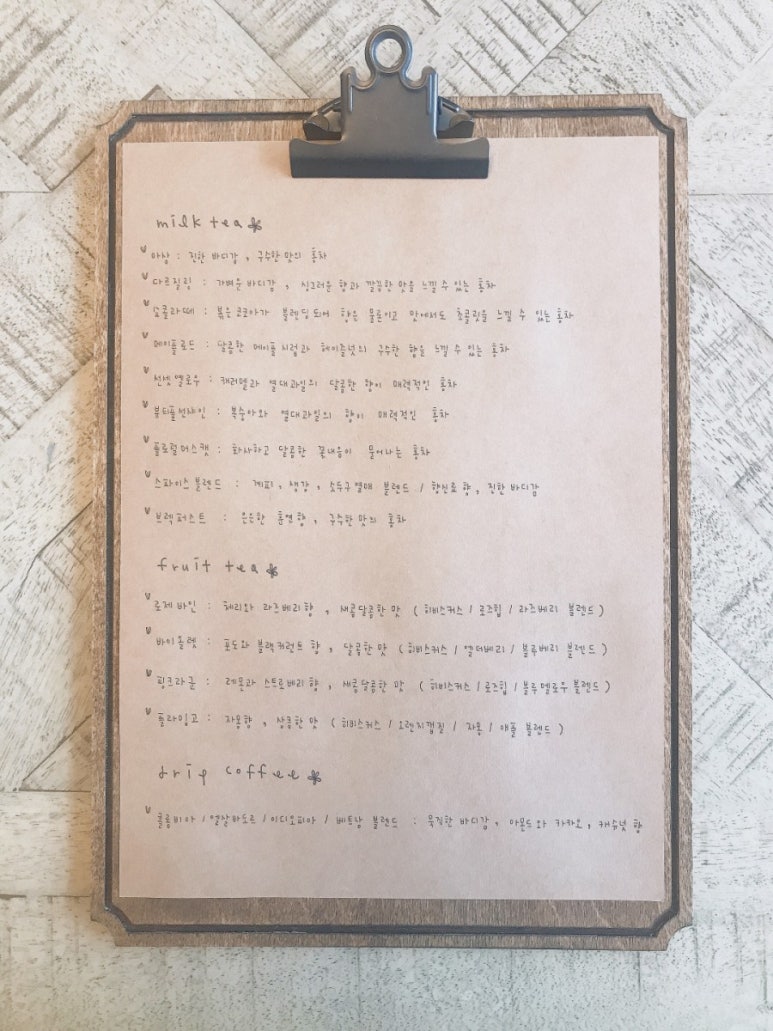 milk tea
아삼 : 진한 바디감, 구수한 맛의 홍차
다르질링 : 가벼운 바디감, 싱그러운 향과 깔끔한 맛을 느낄 수 있는 홍차
쇼콜라떼 : 볶은 코코아가 블렌딩 되어 향은 물론이고 맛에서도 초콜릿을 느낄 수 있는 홍차
메이플로드 : 달콤한 메이플 시럽과 헤이즐넛의 구수한 향을 느낄 수 있는 홍차
선셋옐로우 : 캐러멜과 열대과일의 달콤한 향이 매력적인 홍차
뷰티풀선샤인 : 복숭아와 열대과일의 향이 매력적인 홍차
플로럴머스캣 : 화사하고 달콤한 꽃내음이 묻어나는 홍차
스파이스 블렌드 : 계피, 생강, 소두구열매 블렌드 / 향신료 향, 진한 바디감
브렉퍼스트 : 은은한 훈연향, 구수한 맛의 홍차
fruit tea
로제바인 : 체리와 라즈베리향, 새콤달콤한 맛 (히비스커스 / 로즈힙 / 라즈베리 블렌드)
바이올렛 : 포도와 블랙커런트 향, 달콤한 맛 (히비스커스 / 엘더베리 / 블루베리 블렌드)
핑크라군 : 레몬과 스트로베리향, 새콤달콤한 맛 (히비스커스 / 로즈힙 / 블루멜로우 블렌드)
플라밍고 : 자몽향, 상큼한 맛 (히비스커스 / 오렌지껍질 / 자몽 / 애플 블렌드)
drip coffee
콜롬비아 / 엘살바도르 / 이디오피아 / 베트남 블렌드 : 묵직한 바디감, 아몬드와 카카오, 캐슈넛 향